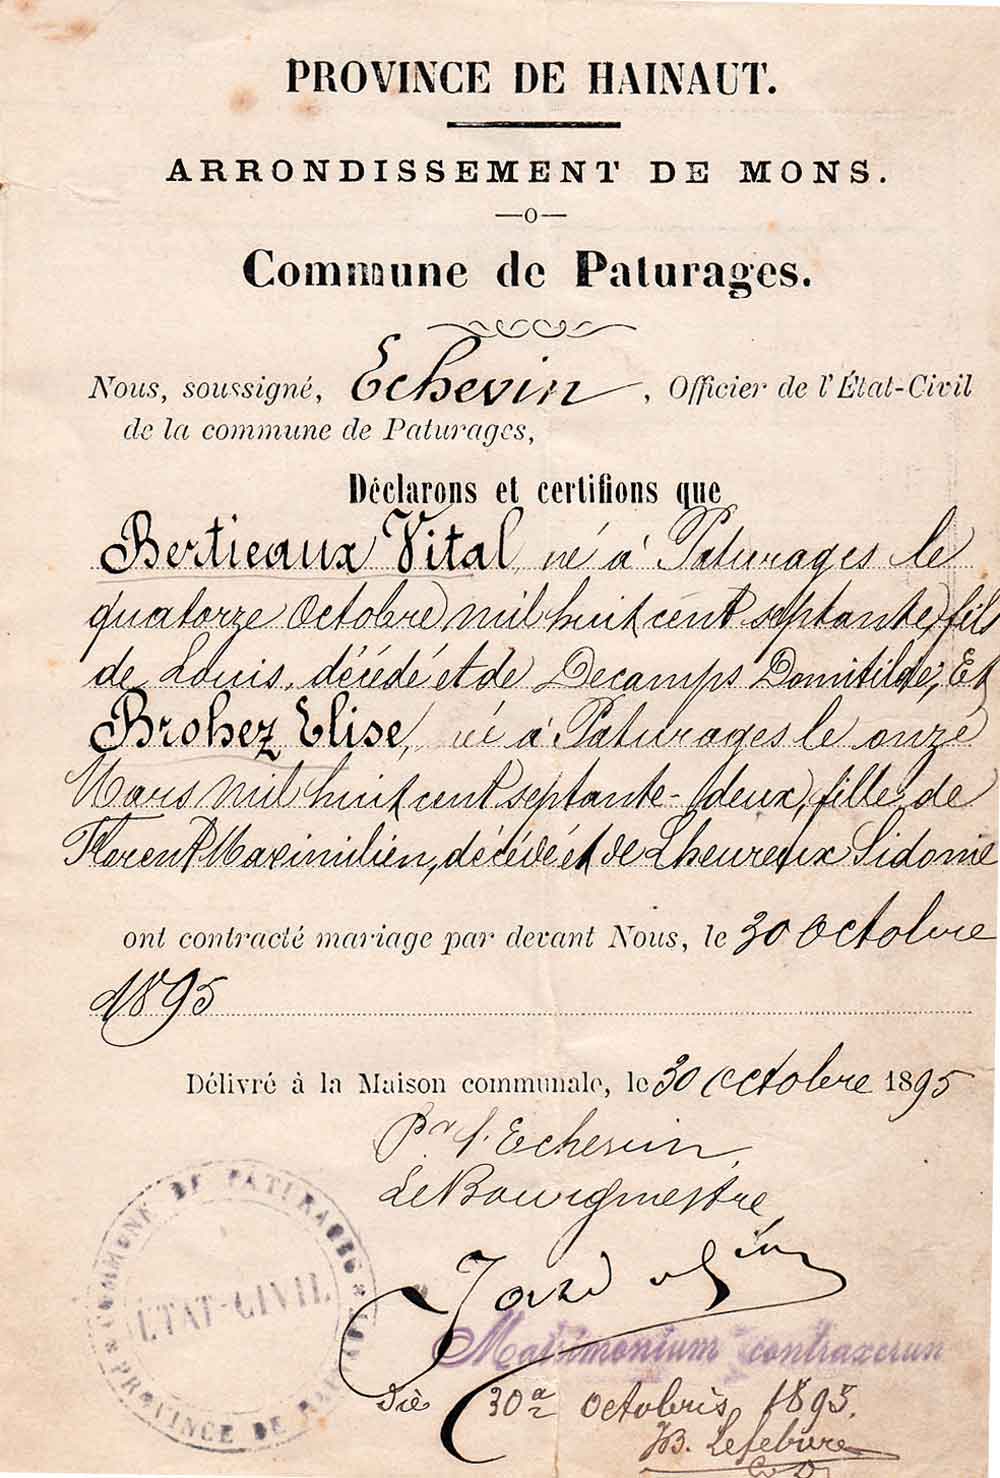 PROVINCE DE HAINAUT.
ARRONDISSEMENT DE MONS.
—o—
Commune de Paturages.
Nous, soussigné, Echevin, Officier de l'État-Civil
de la commune de Paturages,
Déclarons et certifions que
Bertieaux Vital, né à Paturages le
quatorze Octobre mil huit cent septante, fils
de Louis, décédé et de Decamps Domitilde, Et
Brohez Elise, née à Paturages le onze
Mars mil huit cent septante-deux, fille de
Florent Maximilien, décédé et de Lheureux Sidonie
ont contracté mariage par devant Nous, le 30 Octobre
1895
Délivré à la Maison communale, le 30 Octobre 1895
Pr l'Echevin,
Le Bourgmestre
COMMUNE DE PATURAGES
ETAT-CIVIL
PROVINCE DE HAINAUT
Matrimonium contraxerun
Die 30a octobris 1895.
JB. Lefebvre